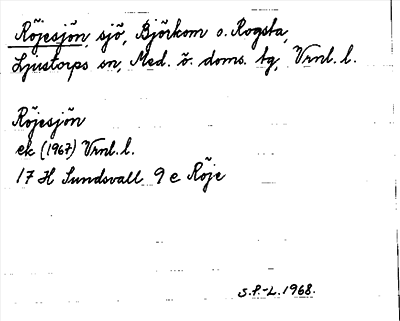 Röjesjön, sjö, Björkom o. Rogsta,
Ljustorps sn, Med. ö. doms. tg, Vrnl. l.
Röjesjön
ek (1967) Vrnl. l.
17 H Sundsvall 9 e Röje
S.P.-L. 1968.